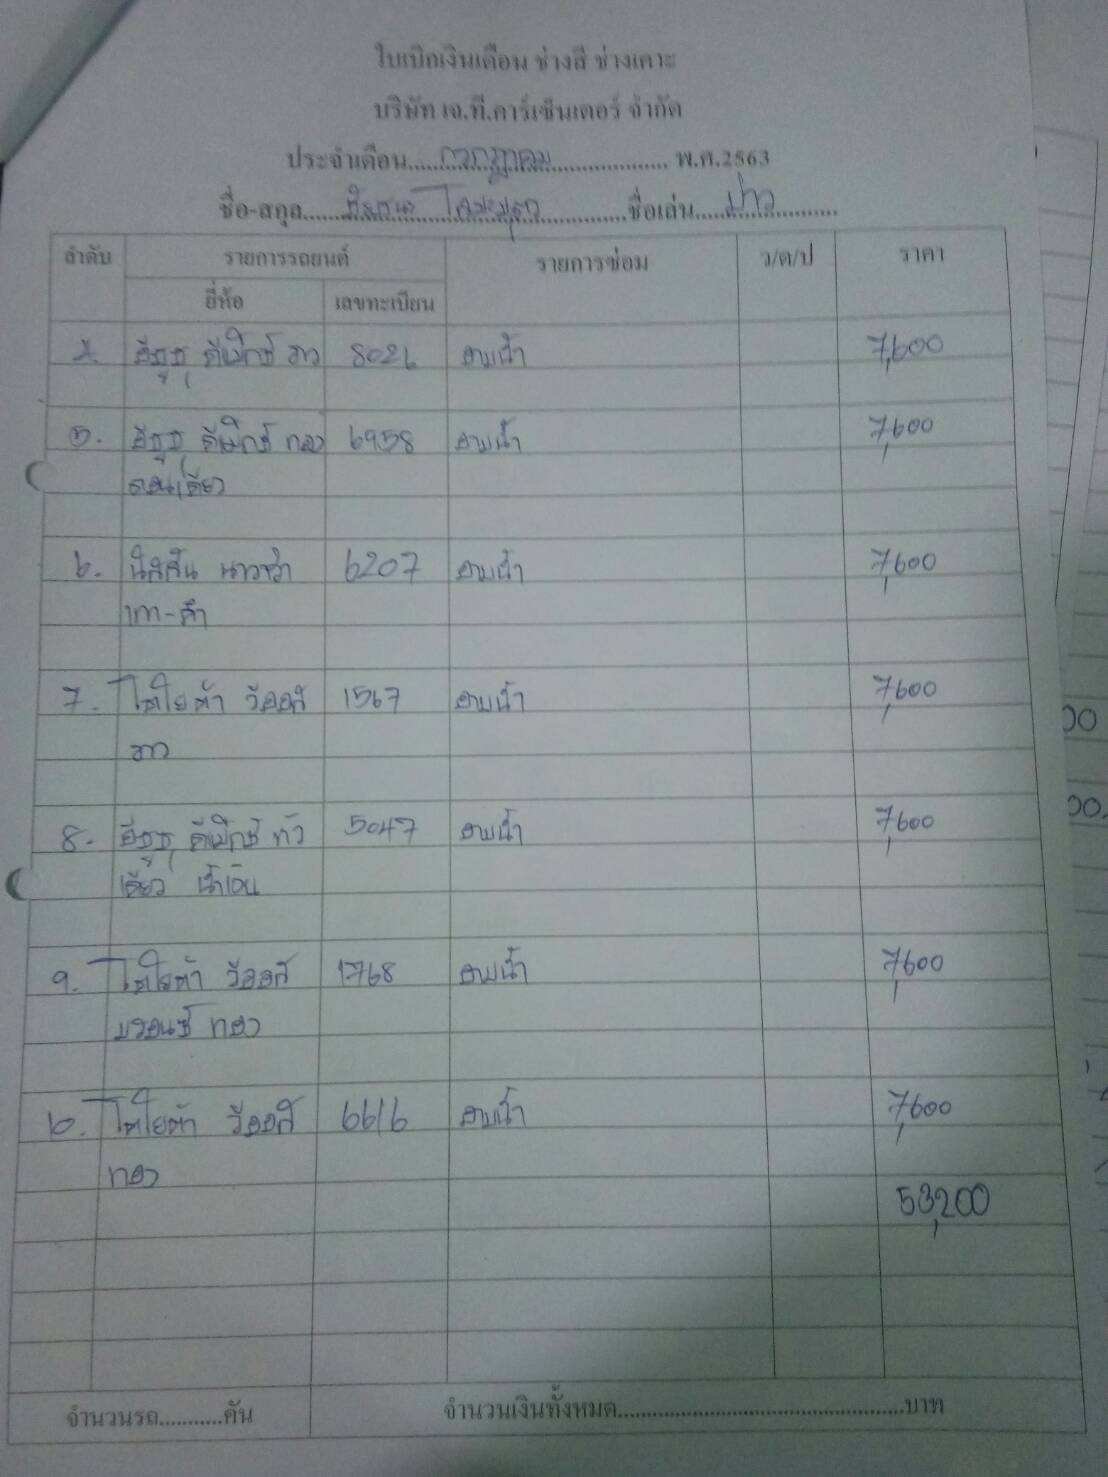 ใบเบิกเงินเดือน ช่างสี ช่างเคาะ
บริษัท เจ.ที.คาร์เซ็นเตอร์ จำกัด
ประจำเดือน.....กรกฎาคม..... พ.ศ.2563
ชื่อ-สกุล..........ชื่อเล่น.....
ลำดับ รายการรถยนต์ รายการซ่อม ว/ด/ป ราคา
ยี่ห้อ เลขทะเบียน
อีซูซุ ดีแม็กซ์ ขาว 8021 อาบน้ำ 7,600
๕. อีซูซุ ดีแม็กซ์ ทอง 6958 อาบน้ำ 7,600
ตอนเดียว
6. นิสสัน นาวาร่า 6207 อาบน้ำ 7,600
เทา-ดำ
7. โตโยต้า วีออส 1567 อาบน้ำ 7,600
ขาว
8. อีซูซุ ดีแม็กซ์ หัว 5047 อาบน้ำ 7,600
เดียว น้ำเงิน
9. โตโยต้า วีออส 1768 อาบน้ำ 7,600
บรอนซ์ ทอง
10. โตโยต้า วีออส 6616 อาบน้ำ 7,600
ทอง
53,200
จำนวนรถ...........คัน จำนวนเงินทั้งหมด..................................................บาท